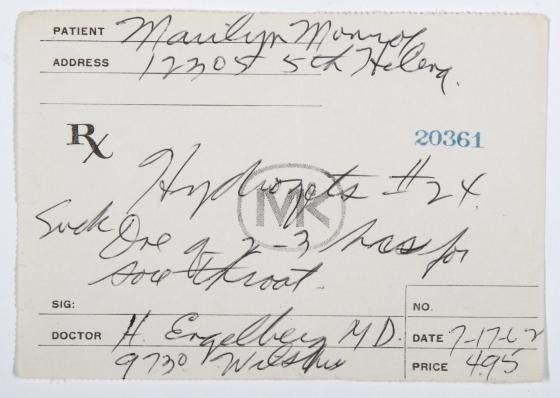 PATIENT Marilyn Monroe
ADDRESS 12305 5th Helena.
Rx 20361
Hydrozets #24.
MK
Suck One q 2-3 hrs for
sore throat.
SIG:
NO.
DOCTOR H. Engelberg M.D.
DATE 7-17-62
9730 Wilshire
PRICE 4.95